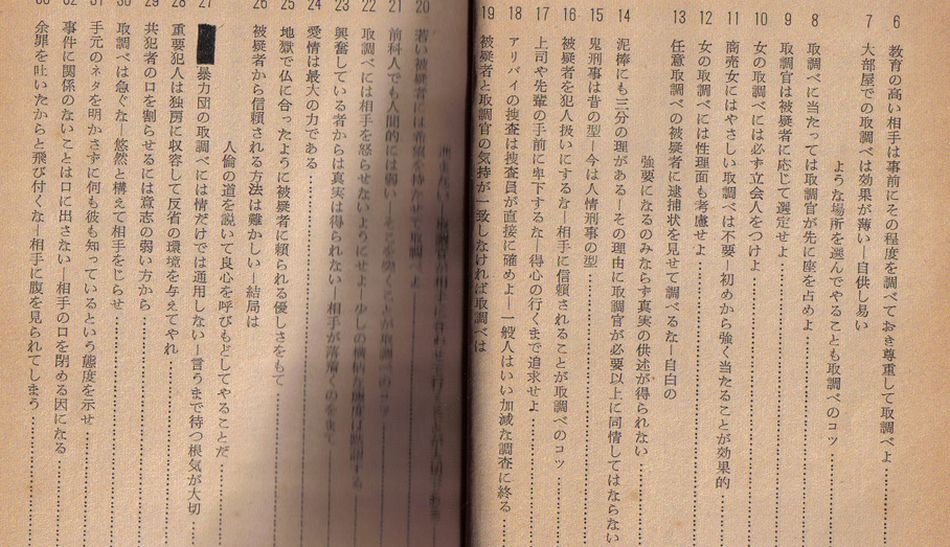 6 教育の高い相手は事前にその程度を調べておき尊重して取調べよ
7 大部屋での取調べは効果が薄い―自供し易い
ような場所を選んでやることも取調べのコツ
8 取調べに当たっては取調官が先に座を占めよ
9 取調官は被疑者に応じて選定せよ
10 女の取調べには必ず立会人をつけよ
11 商売女にはやさしい取調べは不要―初めから強く当たることが効果的
12 女の取調べには性理面も考慮せよ
13 任意取調べの被疑者に逮捕状を見せて調べるな―自白の
強要になるのみならず真実の供述が得られない
14 泥棒にも三分の理がある―その理由に取調官が必要以上に同情してはならない
15 鬼刑事は昔の型―今は人情刑事の型
16 被疑者を犯人扱いにするな―相手に信頼されることが取調べのコツ
17 上司や先輩の手前に卑下するな―得心の行くまで追求せよ
18 アリバイの捜査は捜査員が直接に確めよ―一般人はいい加減な調査に終る
19 被疑者と取調官の気持が一致しなければ取調べは
20 若い被疑者には希望を持かせて取調べよ
21 前科人でも人間的には弱い
22 取調べには相手を怒らせないようにせよ―少しの横柄な態度は
23 興奮している者からは真実は得られない―相手が落着くのをまて
24 愛情は最大の力である
25 地獄で仏に合ったように被疑者に頼られる優しさをもて
26 被疑者から信頼される方法は難かしい―結局は
人倫の道を説いて良心を呼びもどしてやることだ
27 暴力団の取調べには情だけでは通用しない―言うまで待つ根気が大切
28 重要犯人は独房に収容して反省の環境を与えてやれ
29 共犯者の口を割らせるには意志の弱い方から
30 取調べは急ぐな―悠然と構えて相手をじらせ
31 手元のネタを明かさずに何も彼も知っているという態度を示せ
32 事件に関係のないことは口に出さない―相手の口を閉める因になる
33 余罪を吐いたからと飛び付くな―相手に腹を見られてしまう